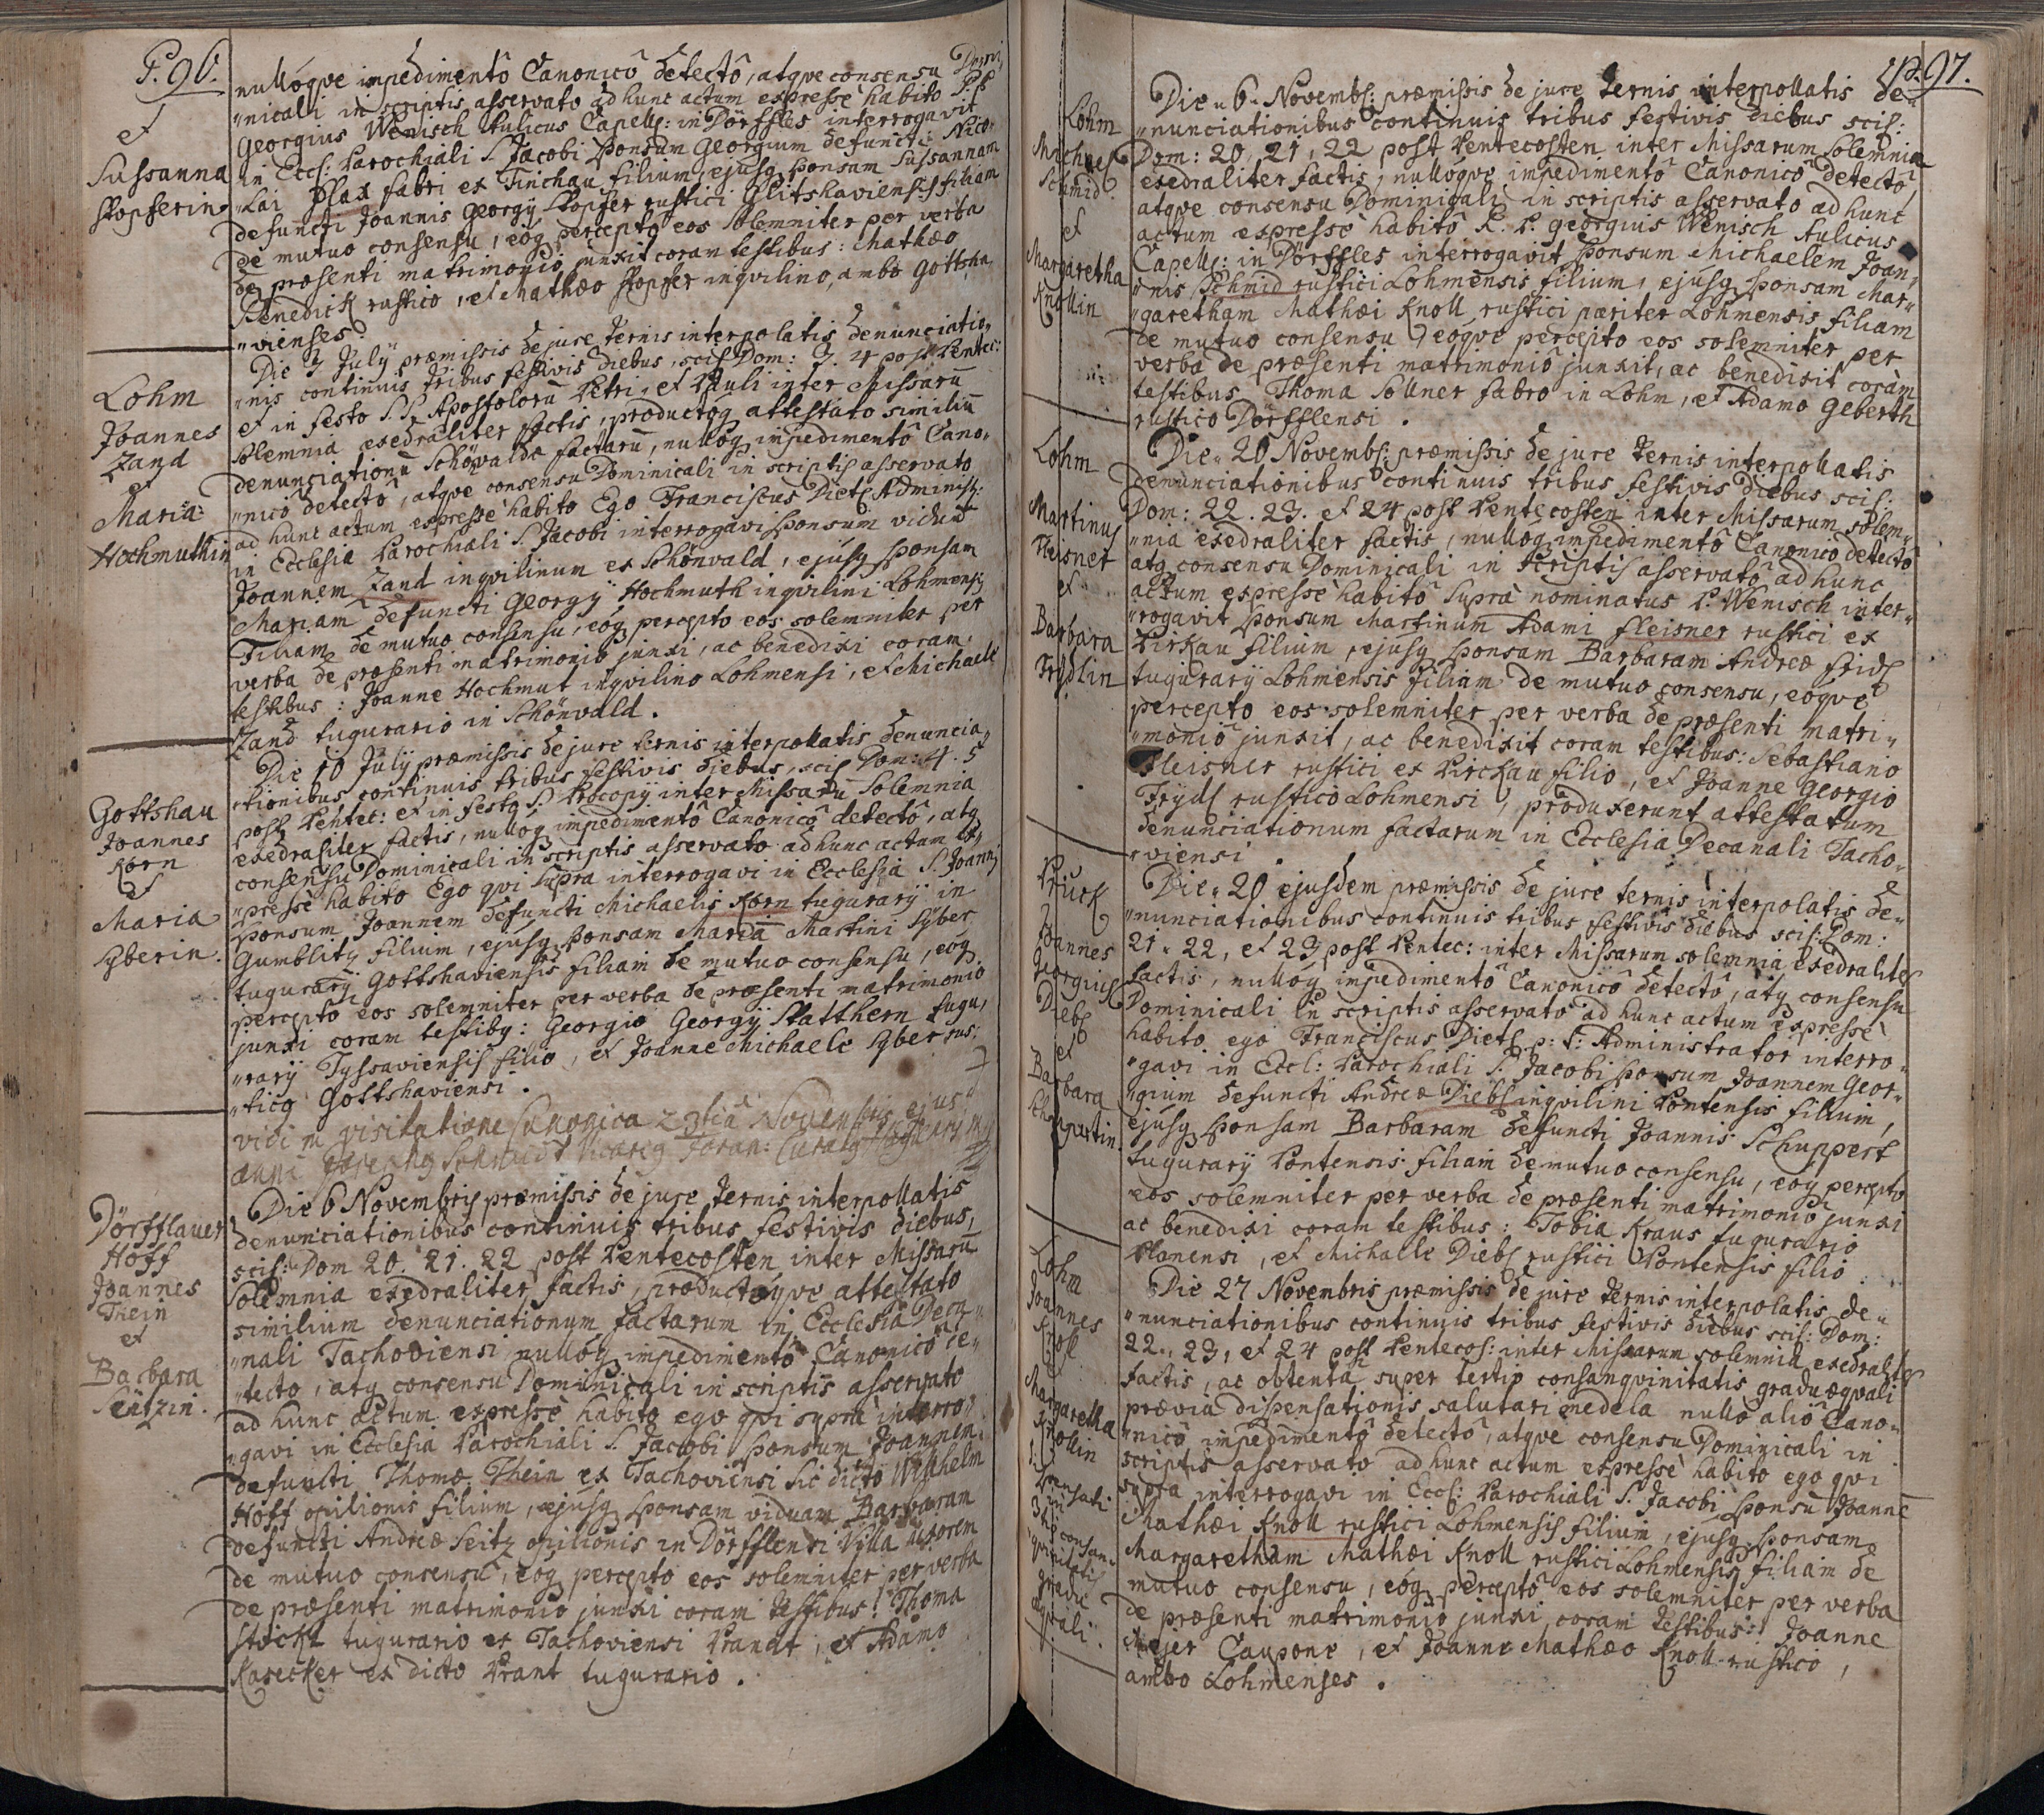 P. 96.
et
Sussanna
Stopferin
nullóqve impedimentô Canonicô detectô, atqve consensu Domi„
„nicali in scriptis asservato ad hunc actum expressè habito P. P.
Georgius Wenisch Aulicus Capell: in Dörffles interrogavit
in Eccl: Parochiali S. Jacobi Sponsum Georgium defuncti Nico„
„lai Plax fabri ex Tinchau filium, ejusq Sponsam Sussannam
defuncti Joannis Georgÿ Stopfer rustici Glitshaviensis filiam
de mutuo consensu, eóq percepto eos solemniter per verba
de præsenti matrimonio junxit coram testibus: Mathæo
Benedick rustico, et Mathæo Stopfer inqvilino, ambo Gottsha„
„vienses.
Lohm
Joannes
Zand
et
Maria
Hochmuthin
Die 3 Julÿ præmissis de jure ternis interpolatis denunciatio„
„nis continuis tribus festivis diebus, scil Dom: 3. 4 post Pentec:
et in festo S.S. Apostolorū Petri, et Pauli inter Missarū
solemnia exedraliter factis, productóq attestato similiū
denunciationū Schönvaldæ factarū, nullóq impedimentô Cano„
„nicô detectô, atqve consensu Dominicali in scriptis asservato
ad hunc actum expressè habito Ego Franciscus Dietl Administr:
in Ecclesia Parochiali S. Jacobi interrogavi Sponsum viduū
Joannem Zand inqvilinum ex Schönvald, ejusq Sponsam
Mariam defuncti Georgÿ Hochmuth inqvilini Lohmensis
Filiam de mutuo consensu, eóq percepto eos solemniter per
verba de præsenti matrimonio junxi, ac benedixi coram
testibus: Joanne Hochmut inqvilino Lohmensi, et Michaele
Zand tugurario in Schönvald.
Gottshau
Joannes
Korn
et
Maria
Syberin.
Die 10 Julÿ præmissis de jure ternis interpollatis denuncia„
„tionibus continuis tribus festivis diebus, scil Dom: 4. 5
post Pentec: et in festo S. Procopÿ inter Missarū Solemnia
exedraliter factis, nullóq impedimentô Canonicô detectô, atq
consensu Dominicali in scriptis asservato ad hunc actum ex„
„pressè habito Ego qvi supra interrogavi in Ecclesia S. Joannis
Sponsum Joannem defuncti Michaelis Korn tugurarÿ in
Gumblitz filium, ejusq Sponsam Mariā Martini Syber
tugurarÿ Gottshaviensis filiam de mutuo consensu, eóq
percepto eos solemniter per verba de præsenti matrimonio
junxi coram testibq: Georgio Georgÿ Statthern tugu„
„rarÿ Tyssaviensis filio, et Joanne Michaele Syber rus„
„ticq Gottshaviensi.
vidi in visitatione Canonica 23tia Novembris ejus„
anni Josephq Schmidt Vicariq Foran:
Dörfflauer
Hoff
Joannes
Thein
et
Barbara
Seitzin.
Die 6 Novembris præmissis de jure ternis interpollatis
denunciationibus continuis tribus festivis diebus,
scil: Dom 20. 21. 22 post Pentecosten inter Missarū
Solemnia exedraliter factis, productóqve attestato
similium denunciationum factarum in Ecclesia Deca„
„nali Tachoviensi nullóq impedimentô Canonicô de„
„tecto, atq consensu Dominicali in scriptis asservato
ad hunc actum expressè habito ego qvi suprà interro„
„gavi in Ecclesia Parochiali S. Jacobi Sponsum Joannem
defuncti Thomæ Thein ex Tachoviensi sic dicto Wilhelm
Hoff opilionis filium, ejusq Sponsam viduam Barbaram
defuncti Andreæ Seitz opilionis in Dörfflensi Villa uxorem
de mutuo consensu, eóq percepto eos solemniter per verba
de præsenti matrimonio junxi coram testibus: Thoma
Stöckl tugurario ex Tachoviensi Prandt, et Adamo
Kasecker ex dicto Prant tugurario.
P. 97.
Lohm
Michael
Schmid
et
Margaretha
Knollin
Die 6 Novemb: præmissis de jure ternis interpollatis de„
„nunciationibus continuis tribus festivis diebus scil:
Dom: 20, 21, 22 post Pentecosten inter Missarum Solemnia
exedraliter factis, nullóqve impedimentô Canonicô detectô
atqve consensu Dominicali in scriptis asservato ad hunc
actum expressè habitô R. P. Georgius Wenisch Aulicus
Capell: in Dörffles interrogavit Sponsum Michaelem Joan„
„nis Schmid rustici Lohmensis filium, ejusq Sponsam Mar„
„garetham Mathæi Knoll rustici pariter Lohmensis filiam
de mutuo consensu, eóqve percepto eos solemniter per
verba de præsenti matrimoniô junxit, ac benedixit coràm
testibus Thoma Söllner fabro in Lohm, et Adamo Geberth
rustico Dörfflensi.
Lohm
Martinus
Fleisner
et
Barbara
Frydlin
Die 20 Novemb: præmissis de jure ternis interpollatis
denunciationibus continuis tribus festivis diebus scil:
Dom: 22. 23. et 24 post Pentecosten inter Missarum solem„
„nia exedraliter factis, nullóq impedimentô Canonicô detectô
atq consensu Dominicali in scriptis asservatô ad hunc
actum expressè habitô suprà nominatus P. Wenisch inter„
„rogavit Sponsum Martinum Adami Fleisner rustici ex
Pirkau filium, ejusq Sponsam Barbaram Andreæ Fridl
tugurarÿ Lohmensis filiam de mutuo consensu, eóqve
percepto eos solemniter per verba de præsenti matri„
„moniô junxit, ac benedixit coram testibus: Sebastiano
Fleisner rustici ex Pirckau filio, et Joanne Georgio
Frydl rustico Lohmensi, produxerunt attestatum
denunciationum factarum in Ecclesia Decanali Tacho„
„viensi.
Pruck
Joannes
Georgius
Diebl
et
Barbara
Schuppertin
Die 20 ejusdem præmissis de jure ternis interpolatis de„
„nunciationibus continuis tribus festivis diebus scil: Dom:
21. 22, et 23 post Pentec: inter Missarum solemnia exedraliter
factis, nullóq impedimentô Canonicô detectô, atq consensu
Dominicali in scriptis asservatô ad hunc actum expressè
habito ego Franciscus Dietl p: t: Administrator interro„
„gavi in Eccl: Parochiali S. Jacobi Sponsum Joannem Geor„
„gium defuncti Andreæ Diebl inqvilini Pontensis filium,
ejusq Sponsam Barbaram defuncti Joannis Schuppert
tugurarÿ Pontensis filiam de mutuo consensu, eóq percepto
eos solemniter per verba de præsenti matrimonio junxi
ac benedixi coram testibus: Tobia Kraus tugurario
Planensi, et Michaele Diebl rustici Pontensis filio.
Lohm
Joannes
Knoll
et
Margaretha
Knollin
Dispensati
in
3tio consan„
qvinitatis
gradu
æqvali.
Die 27 Novembris præmissis de jure ternis interpolatis de„
„nunciationibus continuis tribus festivis diebus scil: Dom:
22., 23, et 24 post Pentecos: inter Missarum solemnia exedraliter
factis, ac obtentâ super tertio consangvinitatis gradu æqvali
præviâ dispensationis salutari medela nullo aliô Cano„
„nicô impedimentô detectô, atqve consensu Dominicali in
scriptis asservato ad hunc actum expressè habito ego qvi
supra interrogavi in Eccl: Parochiali S. Jacobi Sponsū Joannē
Mathæi Knoll rustici Lohmensis filium, ejusq Sponsam
Margaretham Mathæi Knoll rustici Lohmensis filiam de
mutuo consensu, eóq perceptô eos solemniter per verba
de præsenti matrimonio junxi coram testibus: Joanne
Mejer Caupone, et Joanne Mathæo Knoll rustico,
ambo Lohmenses.